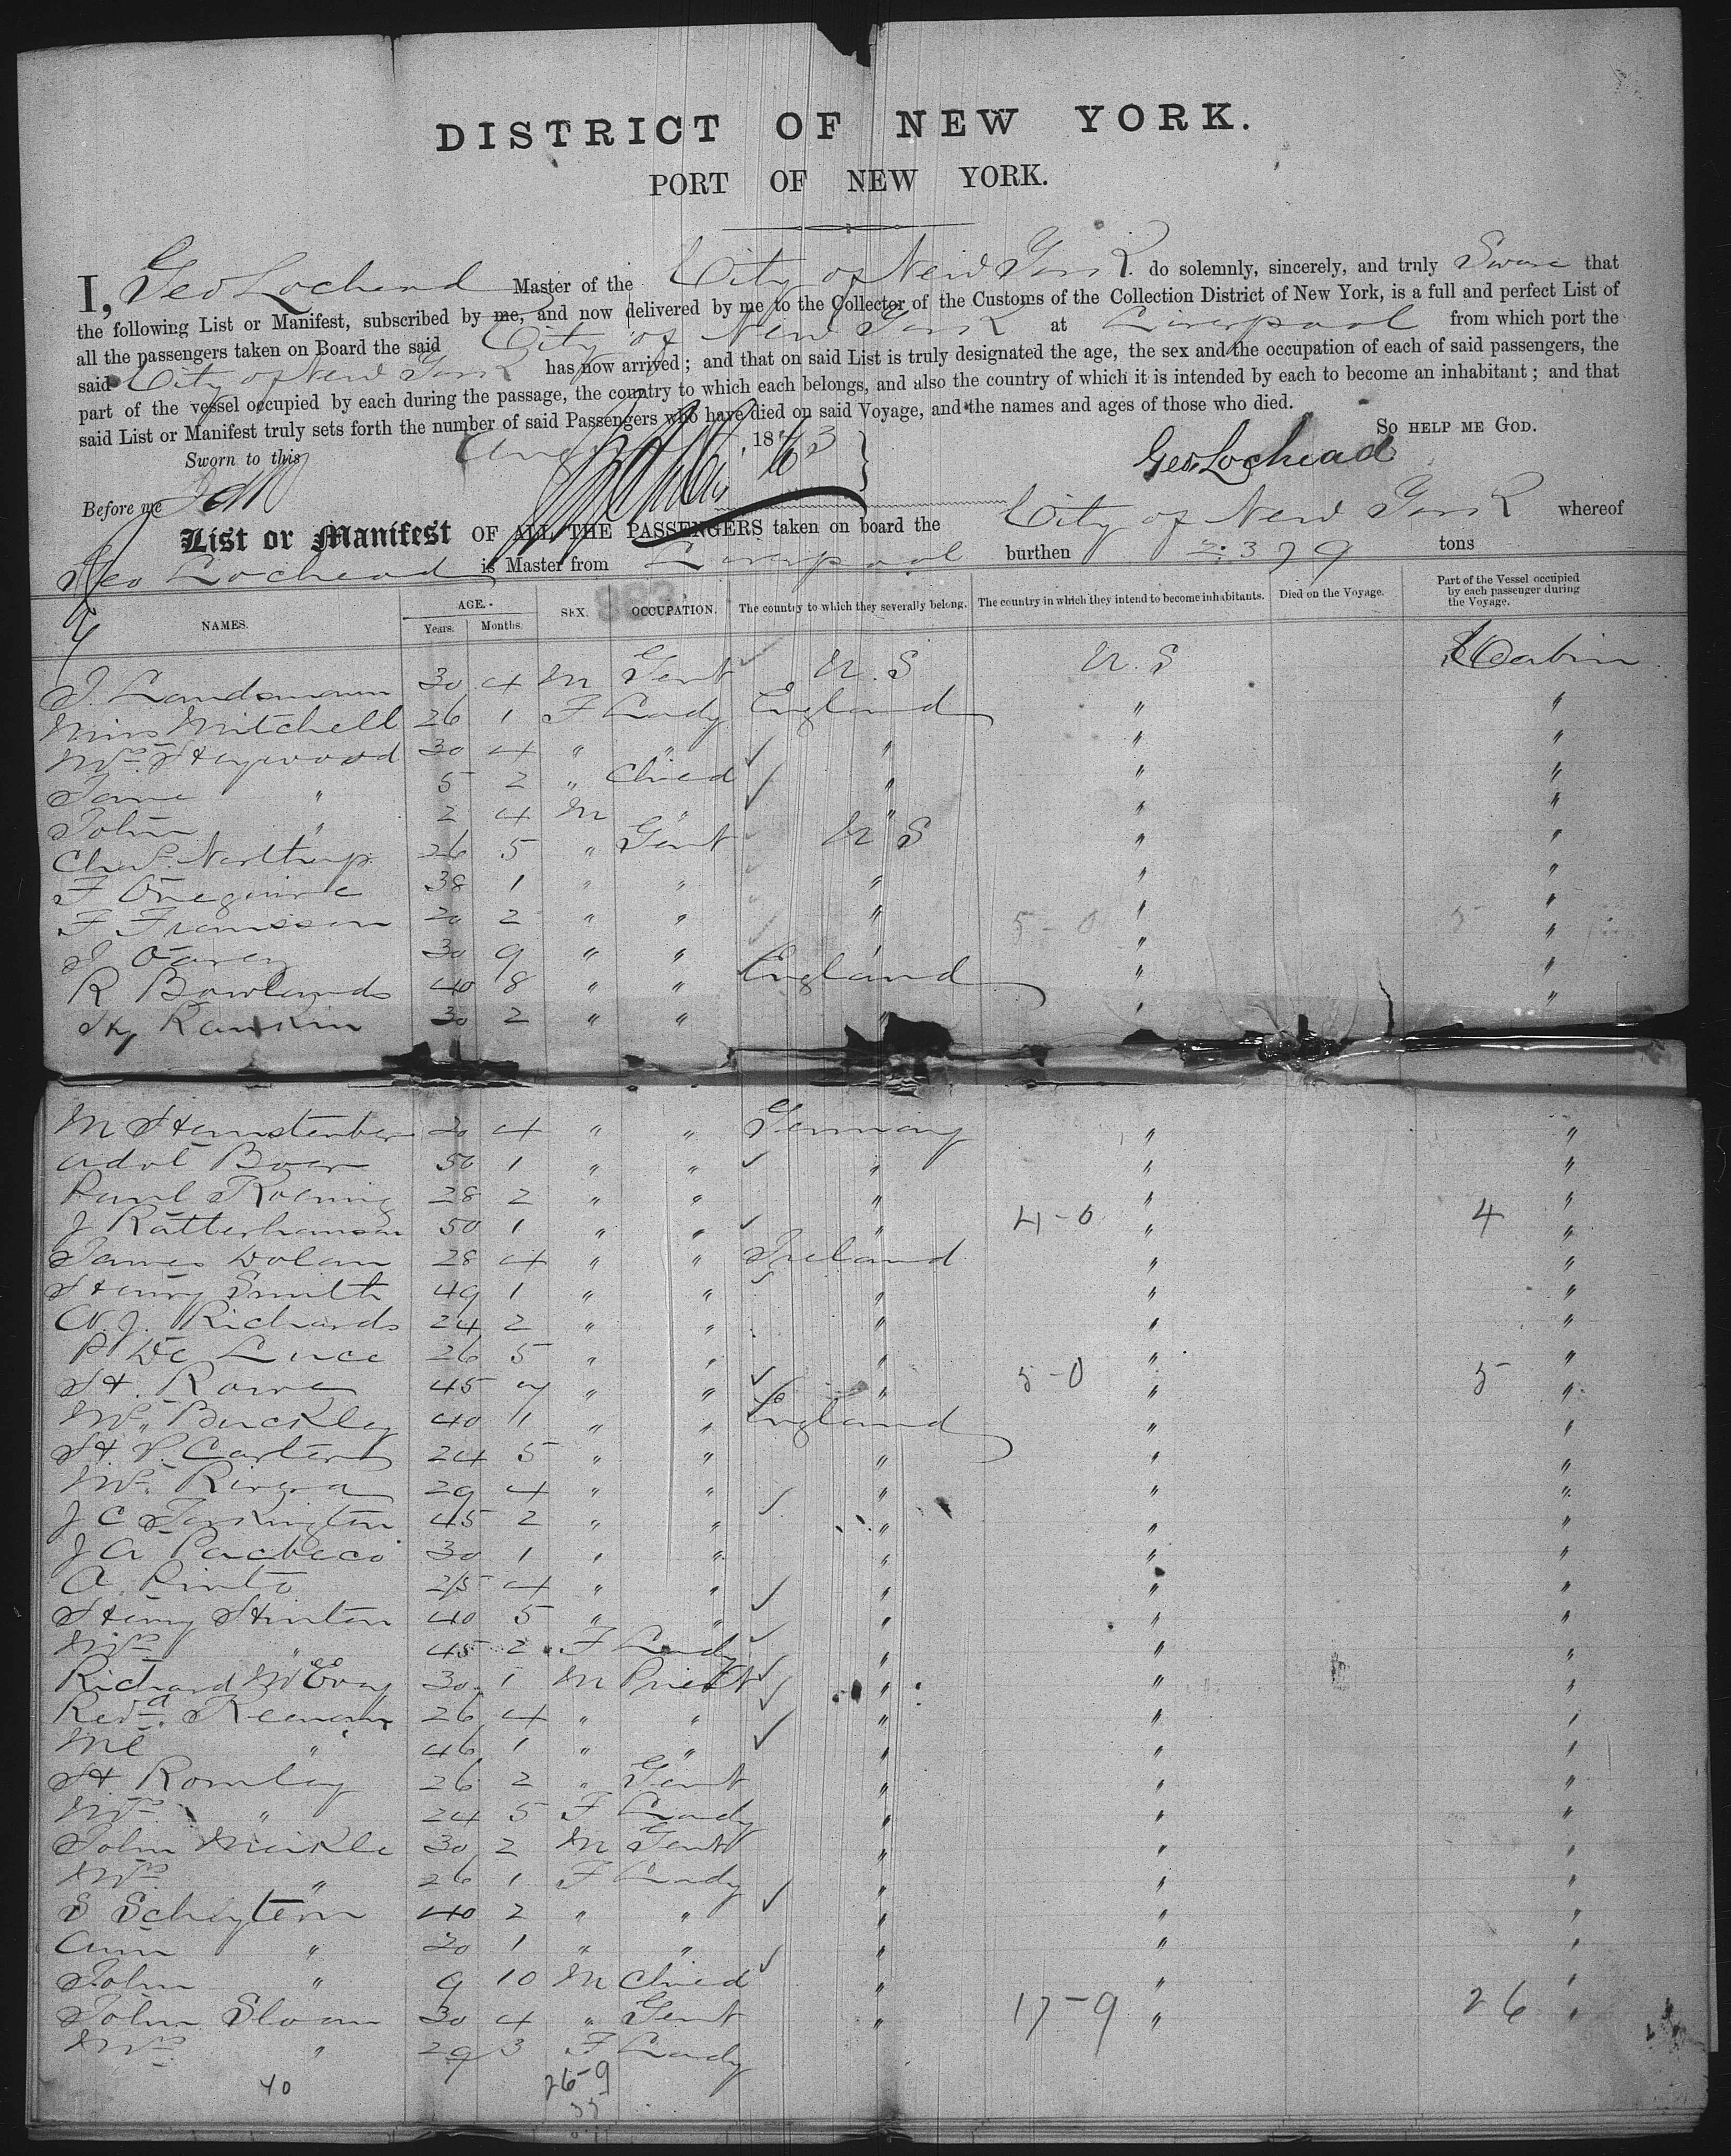 DISTRICT OF NEW YORK.
PORT OF NEW YORK.
I, Geo Lochead Master of the City of New York do solemnly, sincerely, and truly Swear that
the following List or Manifest, subscribed by me, and now delivered by me to the Collector of the Customs of the Collection District of New York, is a full and perfect List of
all the passengers taken on Board the said City of New York at Liverpool from which port the
said City of New York has now arrived; and that on said List is truly designated the age, the sex and the occupation of each of said passengers, the
part of the vessel occupied by each during the passage, the country to which each belongs, and also the country of which it is intended by each to become an inhabitant; and that
said List or Manifest truly sets forth the number of said Passengers who have died on said Voyage, and the names and ages of those who died.
So HELP ME GOD.
Sworn to this Aug 18
Geo Lochead
Before me
List or Manifest OF ALL THE PASSENGERS taken on board the City of New York whereof
Geo Lochead is Master from Liverpool burthen 2379 tons
NAMES. AGE. Years. Months. SEX. OCCUPATION. The country to which they severally belong. The country in which they intend to become inhabitants. Died on the Voyage. Part of the Vessel occupied by each passenger during the Voyage.
J. Landsmann 30 4 M Gent U.S U.S Cabin
Miss Mitchell 26 1 F Lady England " "
Mrs Heywood 30 4 " " " " "
Jane " 5 2 " Child " " "
John " 2 4 M " " " "
Chas Northrup 26 5 " Gent U S " "
F 38 1 " " " " "
F Fransson 20 2 " " " " "
J 30 9 " " " " "
R Bowlands 40 8 " " England " "
Hy Rankin 30 2 " " " " "
M 20 4 " " Germany " "
Adol Boer 50 1 " " " " "
Paul Roening 28 2 " " " " "
J 50 1 " " " 4-0 " 4 "
James Dolan 28 4 " " Ireland " "
Henry Smith 49 1 " " " " "
W.J. Richards 24 2 " " " " "
P De Luce 26 5 " " " " "
H. Rowe 45 7 " " " 5-0 " 5 "
Mr. Buckley 40 11 " " England " "
H. P. Carter 24 5 " " " " "
Mr. 29 4 " " " " "
J C Torkington 45 2 " " " " "
J A Pacheco 30 1 " " " " "
A. Pinto 25 4 " " " " "
Henry Hinton 40 5 " " " " "
Mrs " 45 2 F Lady " " "
Richard McEvoy 30 1 M Priest " " "
Revd. Keenan 26 4 " " " " "
" 46 1 " " " " "
H Romley 26 2 " Gent " " "
Mrs " 24 5 F Lady " " "
John Meikle 30 2 M Gent " " "
Mrs " 26 1 F Lady " " "
S 40 2 " " " " "
Ann " 20 1 " " " " "
John " 9 10 M Child " " "
John Sloan 30 4 " Gent " 17-9 " 26 "
Mrs. " 29 3 F Lady
40 26-9